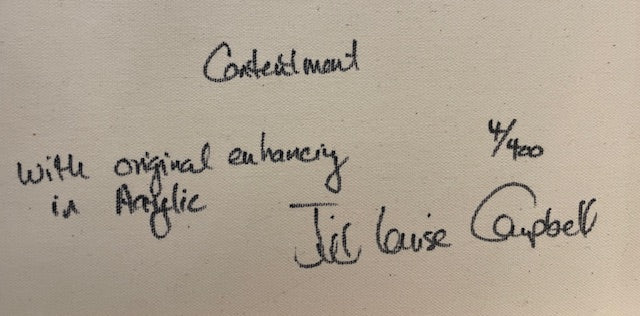 Contentment
with original enhancing 4/400
in Acrylic
Jill Louise Campbell